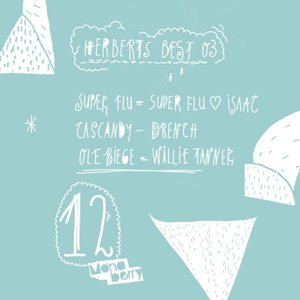 HERBERTS BEST 03
SUPER FLU = SUPER FLU ♡ ISAAC
CASCANDY – BRENCH
OLE BIEGE = WILLIE TANNER
12
Mona
berry